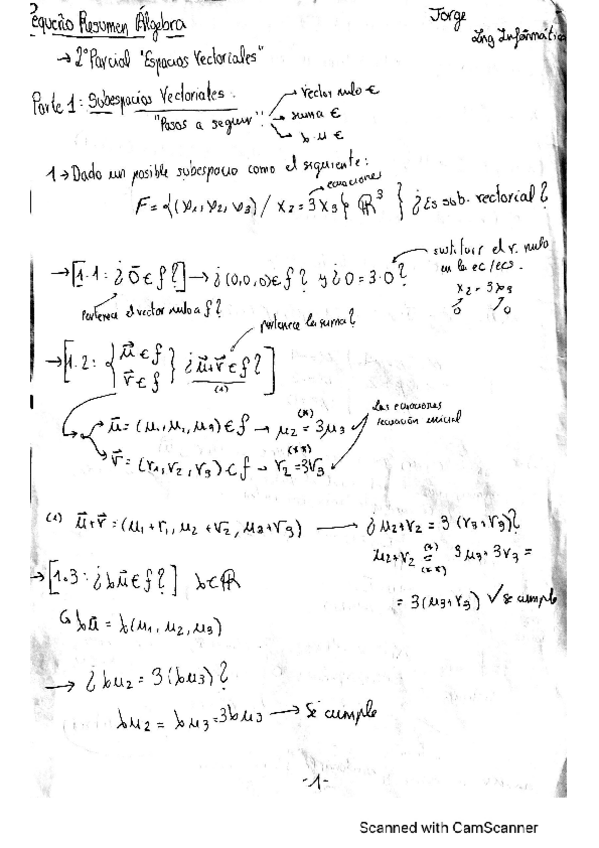 Pequeño Resumen Álgebra
Jorge
Ing Informática
→ 2º Parcial "Espacios Vectoriales"
Parte 1: Subespacios Vectoriales.
"Pasos a seguir":
→ vector nulo ∈
→ suma ∈
→ b·u ∈
1 → Dado un posible subespacio como el siguiente:
ecuaciones
F = {(v1, v2, v3) / x2 = 3x3} ℝ³ } ¿Es sub. vectorial?
→ [1.1: ¿0⃗ ∈ f?] → ¿(0,0,0) ∈ f? y ¿0 = 3·0?
sustituir el v. nulo
en la ec/ecs.
x2 = 3x3
0 0
pertenece el vector nulo a f?
pertenece la suma?
→ [1.2: {u⃗ ∈ f v⃗ ∈ f} ¿u⃗+v⃗ ∈ f?]
(1)
→ u⃗ = (u1, u2, u3) ∈ f → u2 = 3u3 (*)
→ v⃗ = (v1, v2, v3) ∈ f → v2 = 3v3 (**)
las ecuaciones
ecuación inicial
(1) u⃗+v⃗ = (u1+v1, u2+v2, u3+v3) → ¿u2+v2 = 3(v3+v3)?
u2+v2 = 3u3+3v3 =
(*)
(**)
= 3(u3+v3) ✓ se cumple
→ [1.3: ¿bu⃗ ∈ f?] b∈ℝ
↳ bu⃗ = b(u1, u2, u3)
→ ¿bu2 = 3(bu3)?
bu2 = bu3 = 3bu3 → Se cumple
-1-
Scanned with CamScanner